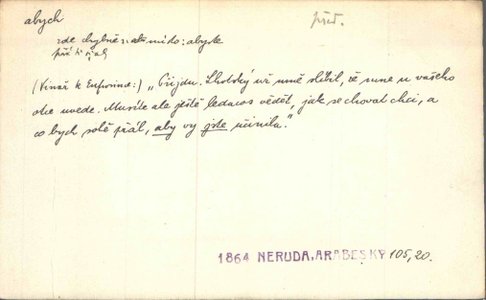 abych
před.
zde chybně místo: abyste
(Vinař k Eufrosině:) „Přijdu. Lhotský už mně slíbil, že mne u vašeho
otce uvede. Musíte ale ještě ledacos vědět, jak se chovat chci, a
co bych sobě přál, aby vy jste učinila."
1864 NERUDA, ARABESKY 105, 20.